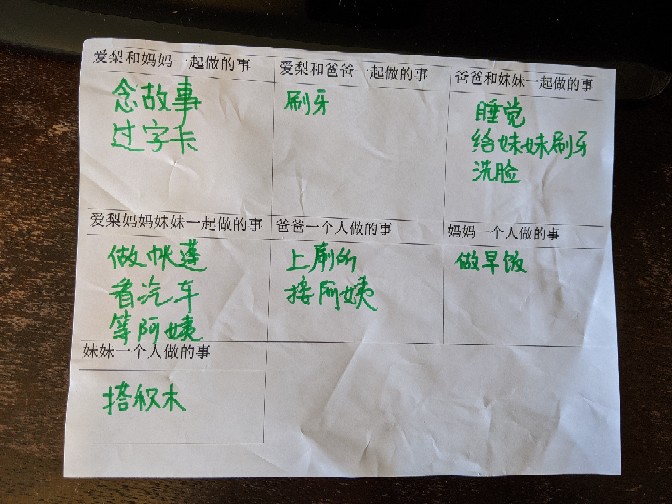 爱梨和妈妈一起做的事
念故事
过字卡
爱梨和爸爸一起做的事
刷牙
爸爸和妹妹一起做的事
睡觉
给妹妹刷牙
洗脸
爱梨妈妈妹妹一起做的事
做帐篷
看汽车
等阿姨
爸爸一个人做的事
上厕所
接阿姨
妈妈一个人做的事
做早饭
妹妹一个人做的事
搭积木